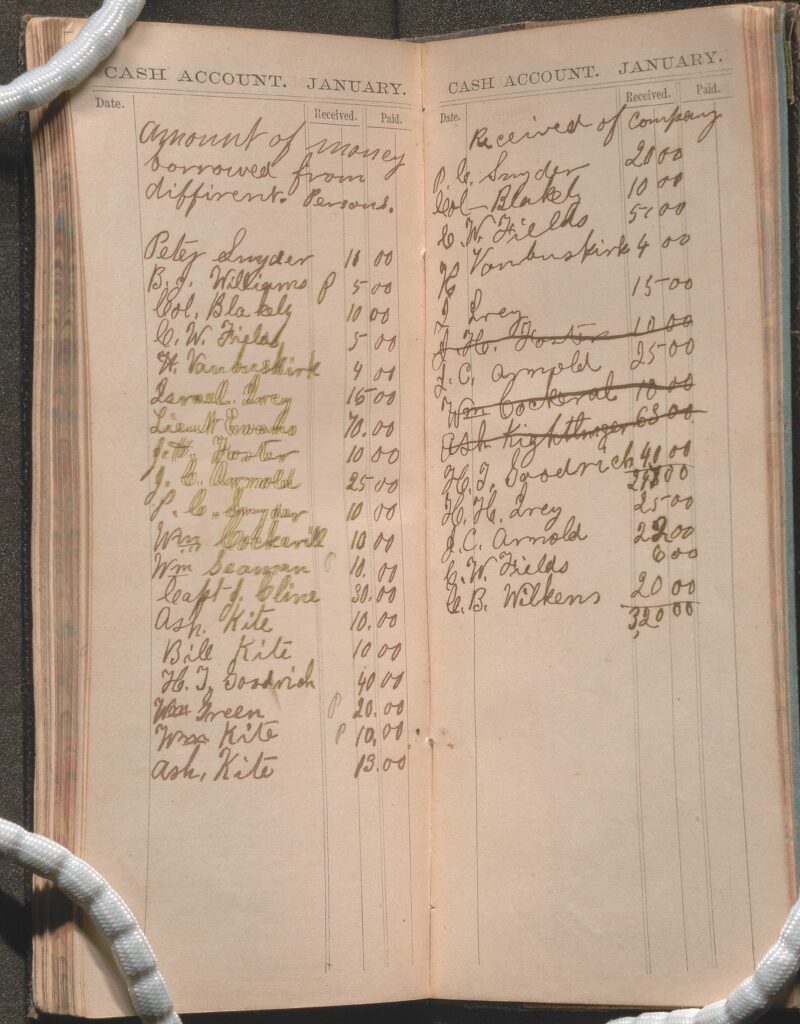 CASH ACCOUNT. JANUARY.
Date. Received. Paid.
Amount of money
borrowed from
diffirent. Persons.
Peter Snyder 10 00
B. J. Williams P 5 00
Col. Blakely 10 00
C. W. Fields 5 00
H. Vanbuskirk 4 00
Israel. Irey 15 00
Lieunt Evans 70.00
J. H. Foster 10 00
J. C. Armold 25 00
P. C. Snyder 10 00
Wm Cockerill 10 00
Wm Seaman P 10.00
Capt J. Cline 30.00
Ash. Kite 10.00
Bill Kite 10 00
H. J. Goodrich 40 00
Wm Green P 20.00
Wm Kite P 10,00
Ash, Kite 13.00
CASH ACCOUNT. JANUARY.
Date. Received. Paid.
Received of company
P. C. Snyder 20 00
Col Blakely 10 00
C. W. Fields 5,00
H Vanbuskirk 4 00
I Irey 15 00
J. H. Foster 10 00
J. C. Armold 25 00
Wm Cockeral 10 00
Ash Kightlinger 63 00
H. J. Goodrich 40 00
00
H. H. Irey 25 00
J. C. Armold 22 00
C. W. Fields 6 00
C. B. Wilkens 20 00
3,20 00